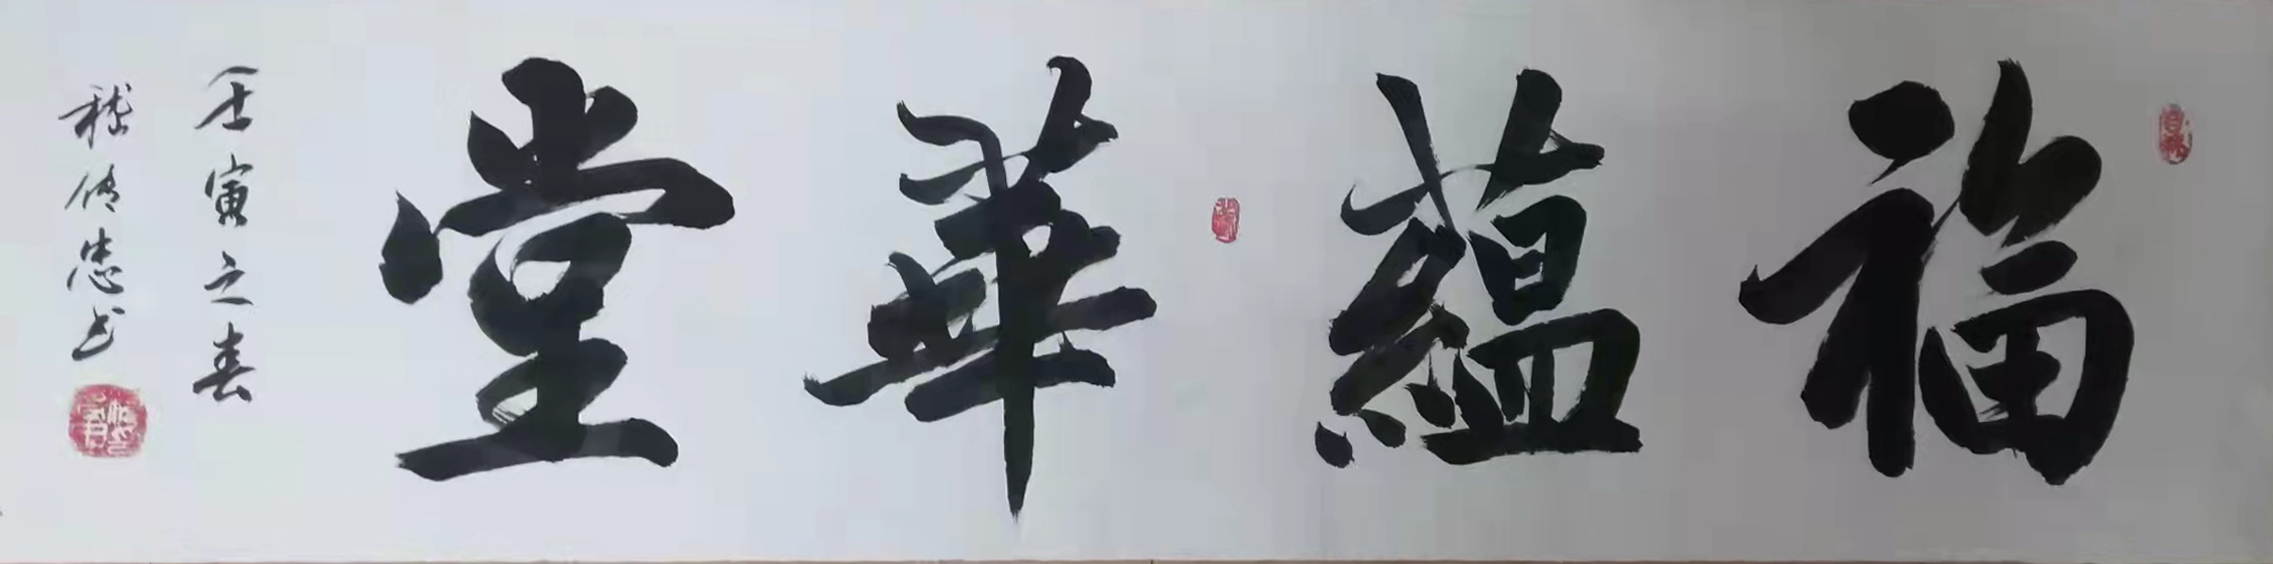 福蘊華堂
壬寅之春
嵇传忠书